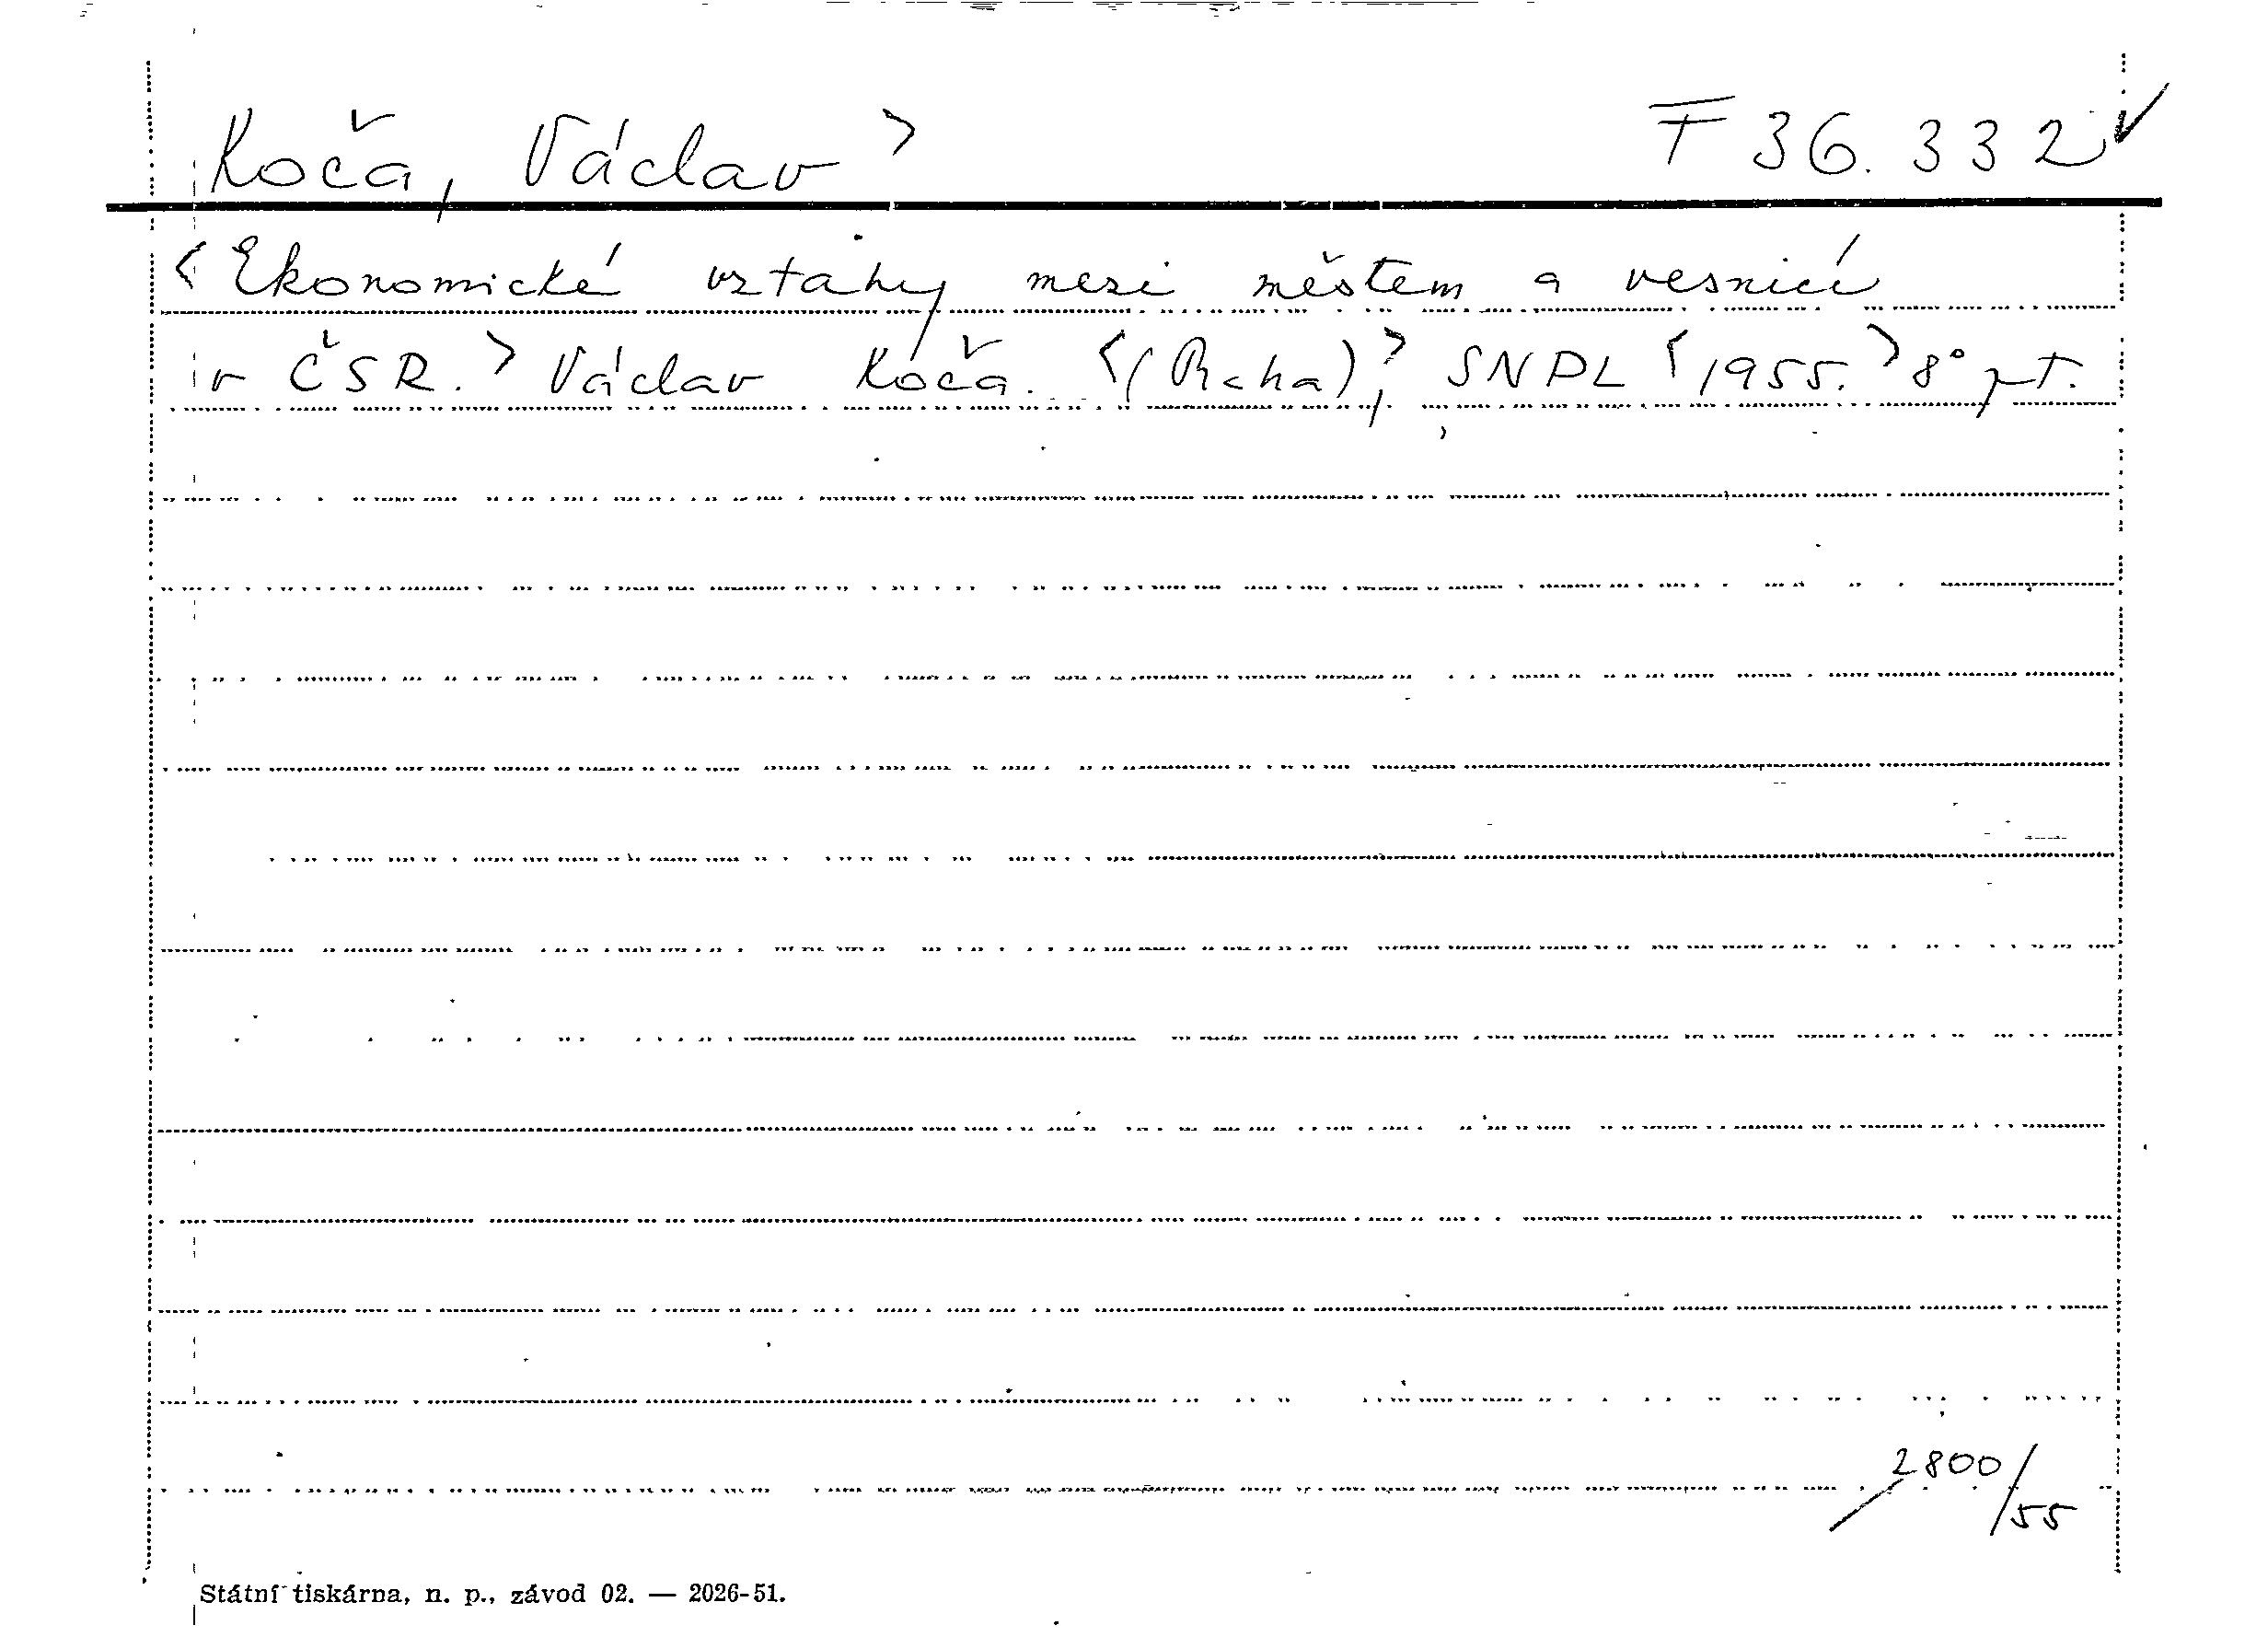 Koča, Václav > F 36.332 ✓
< Ekonomické vztahy mezi městem a vesnicí
v ČSR. > Václav Koča. < (Praha), > SNPL < 1955. > 8° pt.
2800/55
Státní tiskárna, n. p., závod 02. — 2026-51.